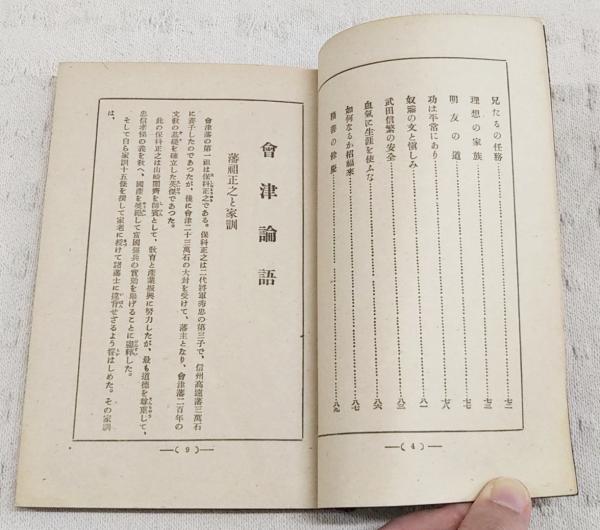 兄たるの任務………七二
理想の家族………七三
朋友の道………七七
功は平常にあり………七八
奴僕の文と愼しみ………八一
武田信繁の安全………八三
血氣に生涯を使ふな………八六
如何なるか招福來………八七
の修養………八九
(4)
會津論語
藩祖正之と家訓
會津藩の第一祖は保科正之である。保科正之は二代將軍秀忠の第三子で、信州高遠藩三萬石
に養子したのであつたが、後に會津二十三萬石の大封を受けて、藩主となり、會津藩二百年の
文敎の基礎を確立した英傑であつた。
此の保科正之は山崎闇齊を師賓として、敎育と產業振興に努力したが、最も道德を尊重して、
忠信孝悌の義を敎へ、國產を奬勵して富國强兵の實効を擧げることに盡瘁した。
そして自ら家訓十五條を撰して家老に授けて諸藩士に遵育せざるよう誓はしめた。その家訓
は、
(9)